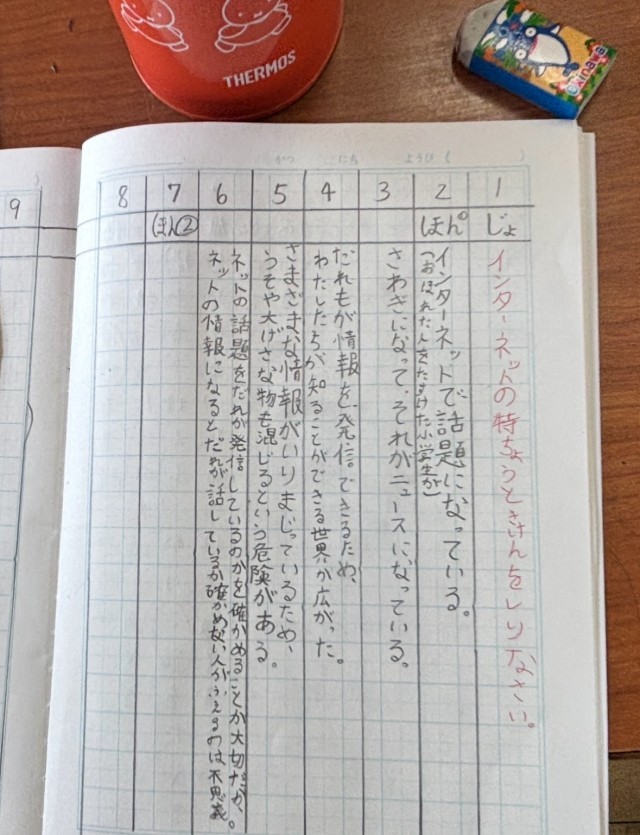 THERMOS
okinawa
がつ にち ようび( )
1
じょ
インターネットの特ちょうときけんをしりなさい。
2
ほんぺ
インターネットで話題になっている。
(おぼれた人をたすけた小学生が)
3
さわぎになって、それがニュースになっている。
4
だれもが情報を発信できるため、
わたしたちが知ることができる世界が広がった。
5
さまざまな情報がいりまじっているため、
うそや大げさな物も混じるという危険がある。
6
ネットの話題をだれが発信しているのかを確かめることが大切だが、
ネットの情報になるとだれが話しているか確かめない人がふえるのは不思議。
7
ほん②
8
9